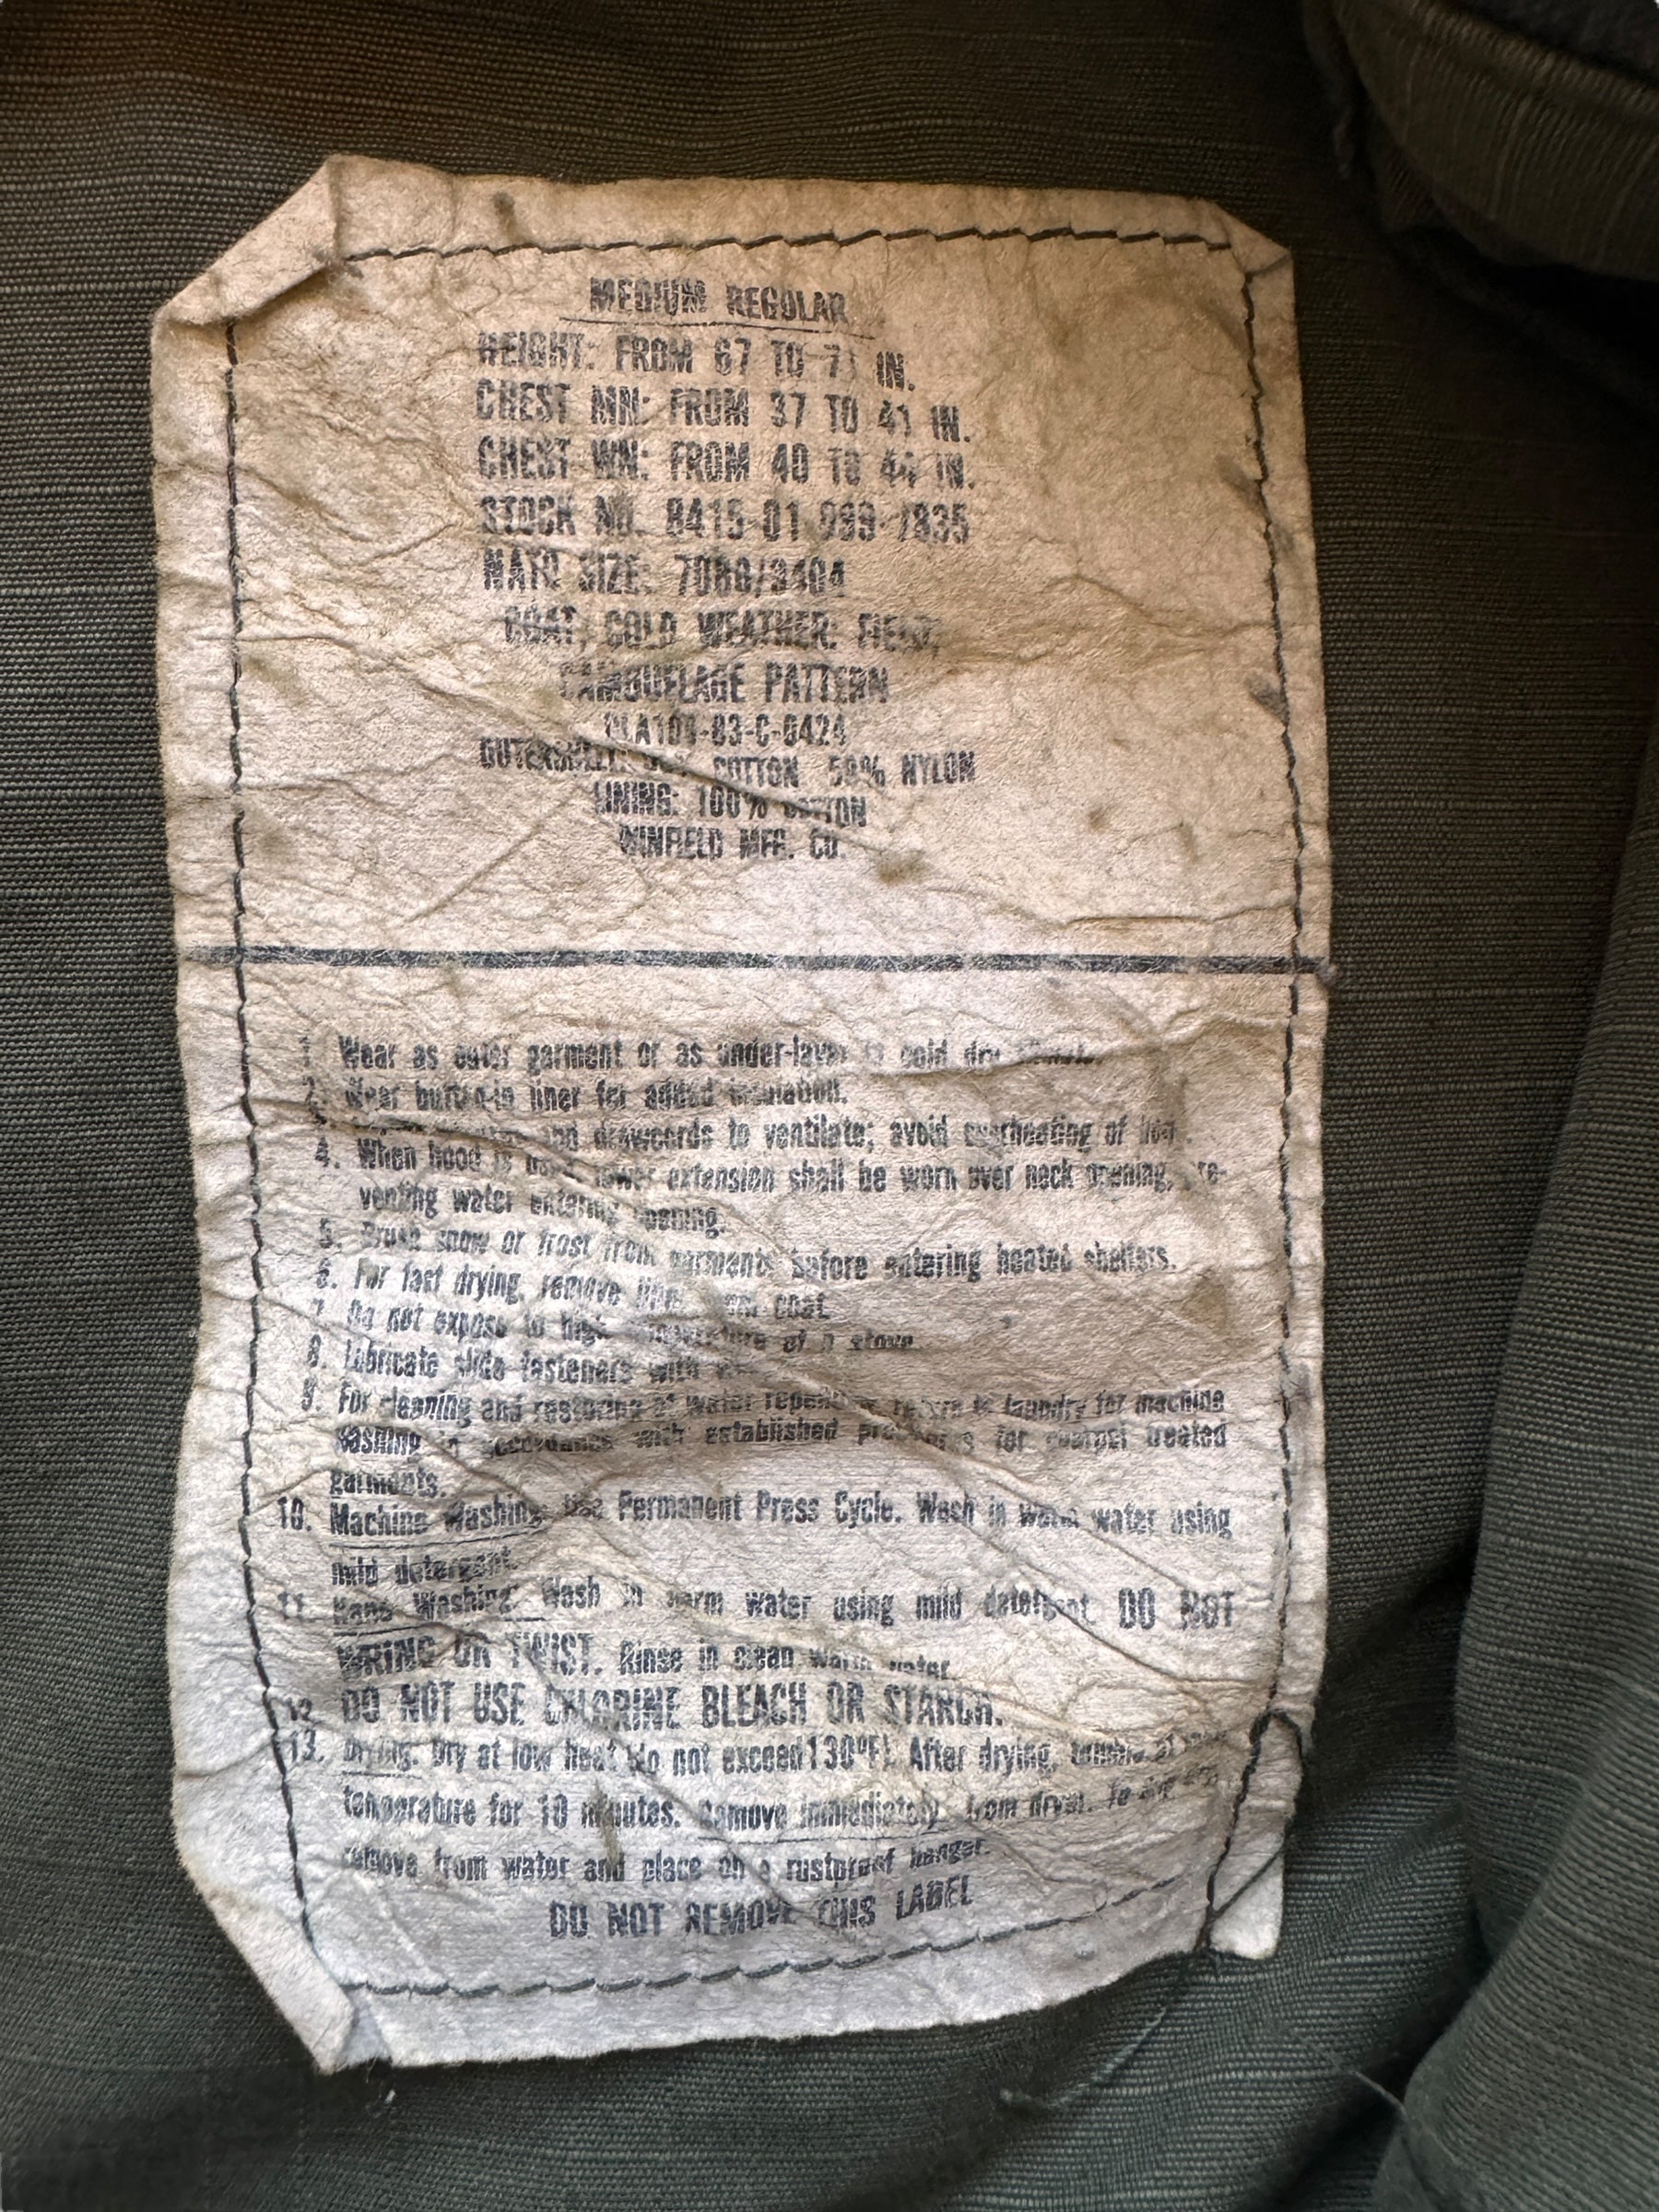 MEDIUM REGULAR
HEIGHT: FROM 67 TO 71 IN.
CHEST MN: FROM 37 TO 41 IN.
CHEST WN: FROM 40 TO 44 IN.
STOCK NO. 8415-01-099-7835
NATO SIZE: 7080/9404
COAT, COLD WEATHER: FIELD,
CAMOUFLAGE PATTERN
DLA100-83-C-0424
OUTERSHELL: COTTON 50% NYLON
LINING: 100% COTTON
WINFIELD MFG. CO.
1. Wear as outer garment or as under-layer in cold dry climate.
2. Wear button-in liner for added insulation.
3. and drawcords to ventilate; avoid overheating of body.
4. When hood is used, lower extension shall be worn over neck opening, pre-
venting water entering opening.
5. Brush snow or frost from garments before entering heated shelters.
6. For fast drying, remove liner from coat.
7. Do not expose to high temperature of a stove.
8. Lubricate slide fasteners with
9. For cleaning and restoring of water repellency return to laundry for machine
washing in accordance with established procedures for quarpel treated
garments.
10. Machine Washing: Use Permanent Press Cycle. Wash in warm water using
mild detergent.
11. Hand Washing: Wash in warm water using mild detergent. DO NOT
WRING OR TWIST. Rinse in clean warm water.
12. DO NOT USE CHLORINE BLEACH OR STARCH.
13. Drying: Dry at low heat (do not exceed 130°F). After drying, tumble at
temperature for 10 minutes. Remove immediately from dryer. To drip dry,
remove from water and place on a rustproof hanger.
DO NOT REMOVE THIS LABEL